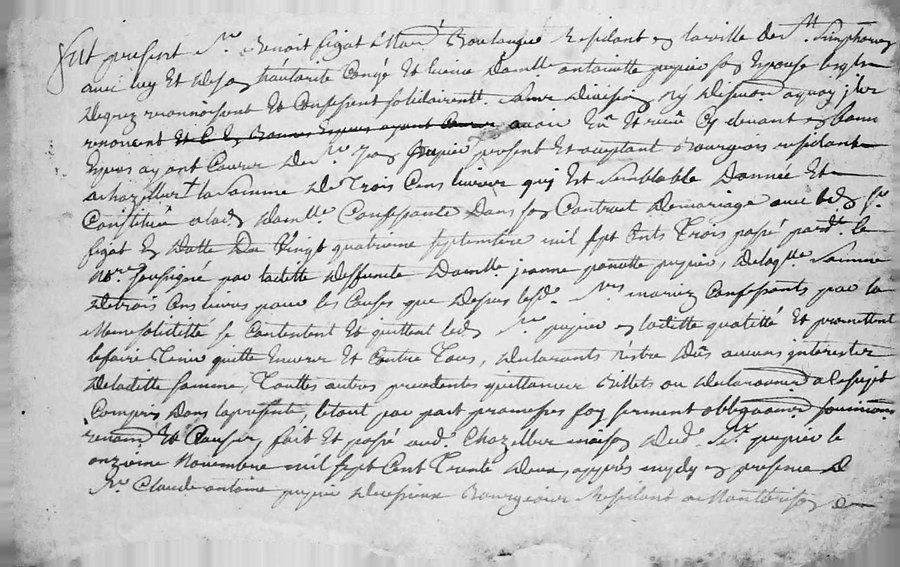 Fut present Sr. Benoit figat Md. Boulangé Residant en la ville de St. Simphorien
avec luy Et de son hautorité Congé Et licence Damlle antoinette pupier son Epouse lesqls
De grez reconnoissent Et Confessent solidairemt. sans division ny discution a quoy ils
renoncent Et avoir Eu Et reçu Cy devant en bonne
Especes ayant Cours De Sr. pupier present Et acceptant Bourgeois residant
a chazelles la Somme De Trois Cens livres quy Est Semblable Donnée Et
Constituée a lad. Damlle Confessante Dans son Contract De mariage avec led. Sr.
figat En Datte Du Vingt quatrieme septembre mil sept Cents Trois passé pard. le
Nore. soussigné par laditte Deffunte Damlle jeanne pupier, De laqlle. Somme
De trois Cens livres pour les Causes que Dessus lesd. mariez Confessants par la
Meme solidité se Contentent Et quittent led. Sr. pupier en laditte qualité Et promettent
le faire Tenir quitte Envers Et Contre Tous, Declarants n'estre Dûs aucuns interests
De laditte somme, Touttes autres precedentes quittances Billets ou Declarations a Ce sujet
Compris Dans la presente, Et tout par part promesses foy serment obligations soumissions
renond. Et Clauses, fait Et passé aud. Chazelles maison Dud. Sr. pupier le
onzieme Novembre mil sept Cent Trente Deux, apprès mydy en presence De
Sr. Claude antoine pupier Bourgeois Residant a Montbrison